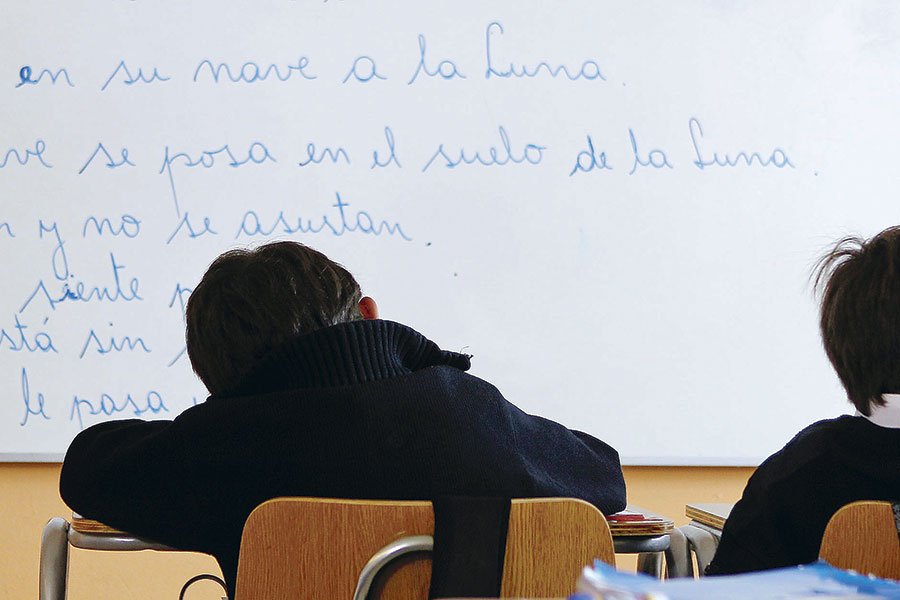 en su nave a la Luna.
ve se posa en el suelo de la Luna.
n y no se asustan.
siente p
stá sin s
le pasa